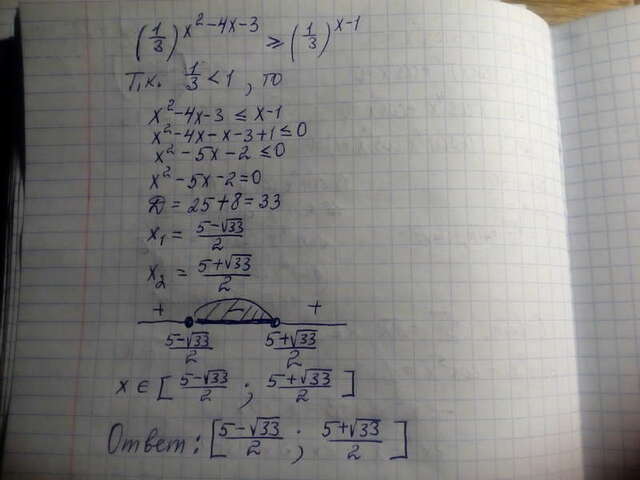 (1/3)^(x²-4x-3) ≥ (1/3)^(x-1)
Т.к. 1/3 < 1, то
x²-4x-3 ≤ x-1
x²-4x-x-3+1 ≤ 0
x²-5x-2 ≤ 0
x²-5x-2=0
D = 25+8=33
x₁ = (5-√33)/2
x₂ = (5+√33)/2
+ - +
(5-√33)/2 (5+√33)/2
x ∈ [(5-√33)/2 ; (5+√33)/2]
Ответ: [(5-√33)/2 ; (5+√33)/2]